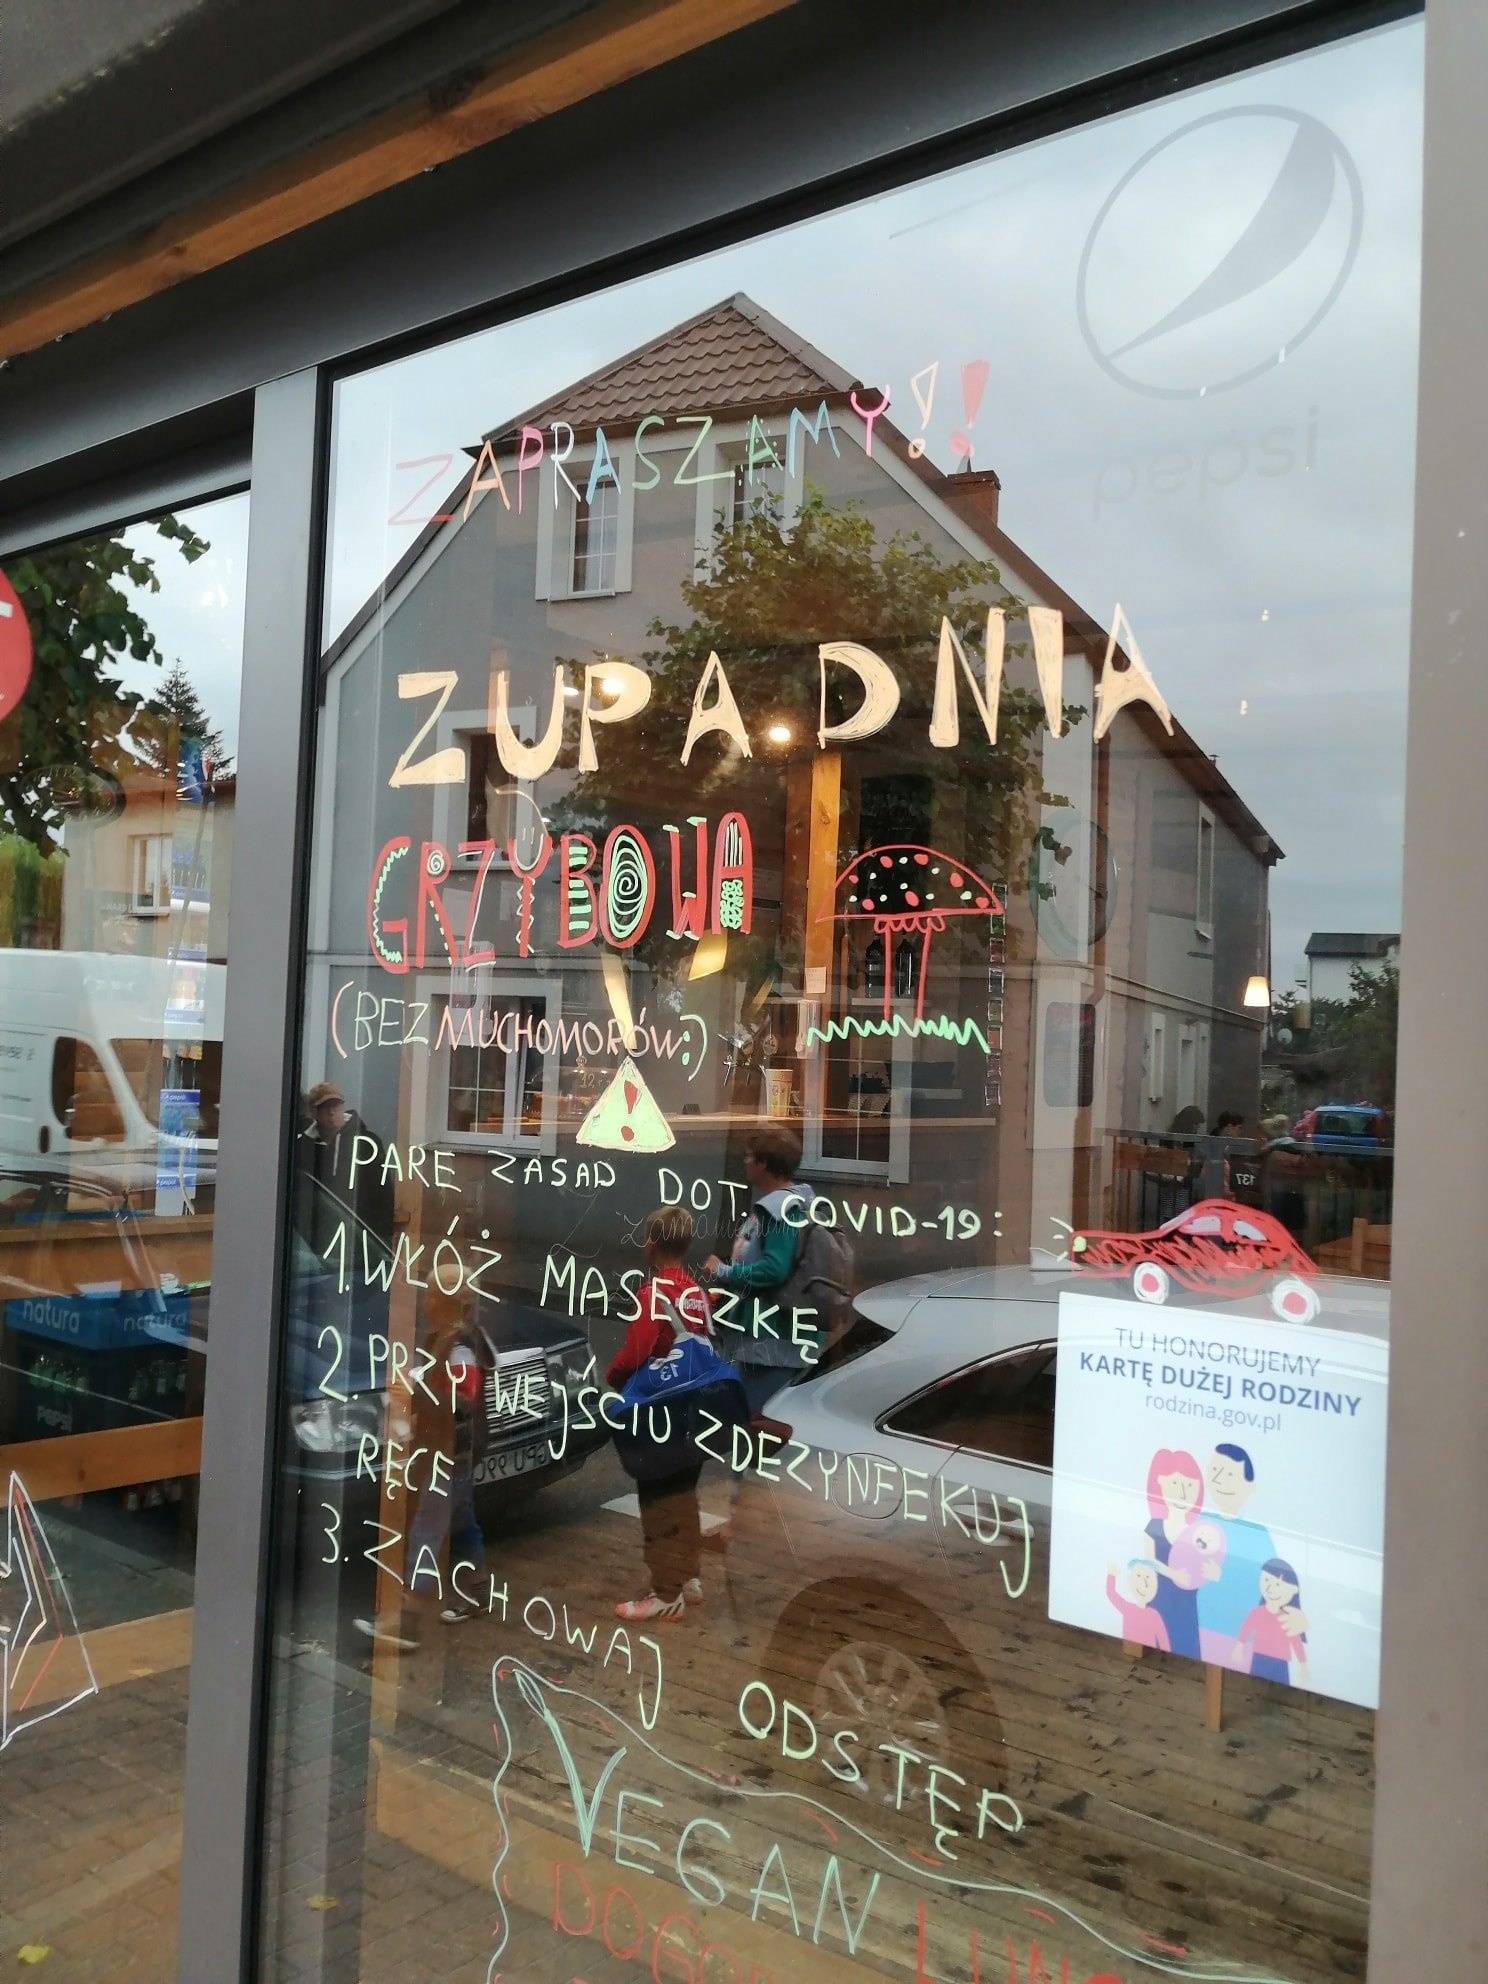 ZAPRASZAMY!!
pepsi
ZUPA DNIA
GRZYBOWA
(BEZ MUCHOMORÓW:)
!
PARĘ ZASAD DOT. COVID-19:
1. WŁÓŻ MASECZKĘ
2. PRZY WEJŚCIU ZDEZYNFEKUJ
RĘCE
3. ZACHOWAJ ODSTĘP
VEGAN
TU HONORUJEMY
KARTĘ DUŻEJ RODZINY
rodzina.gov.pl
natura natura
pepsi
13
137